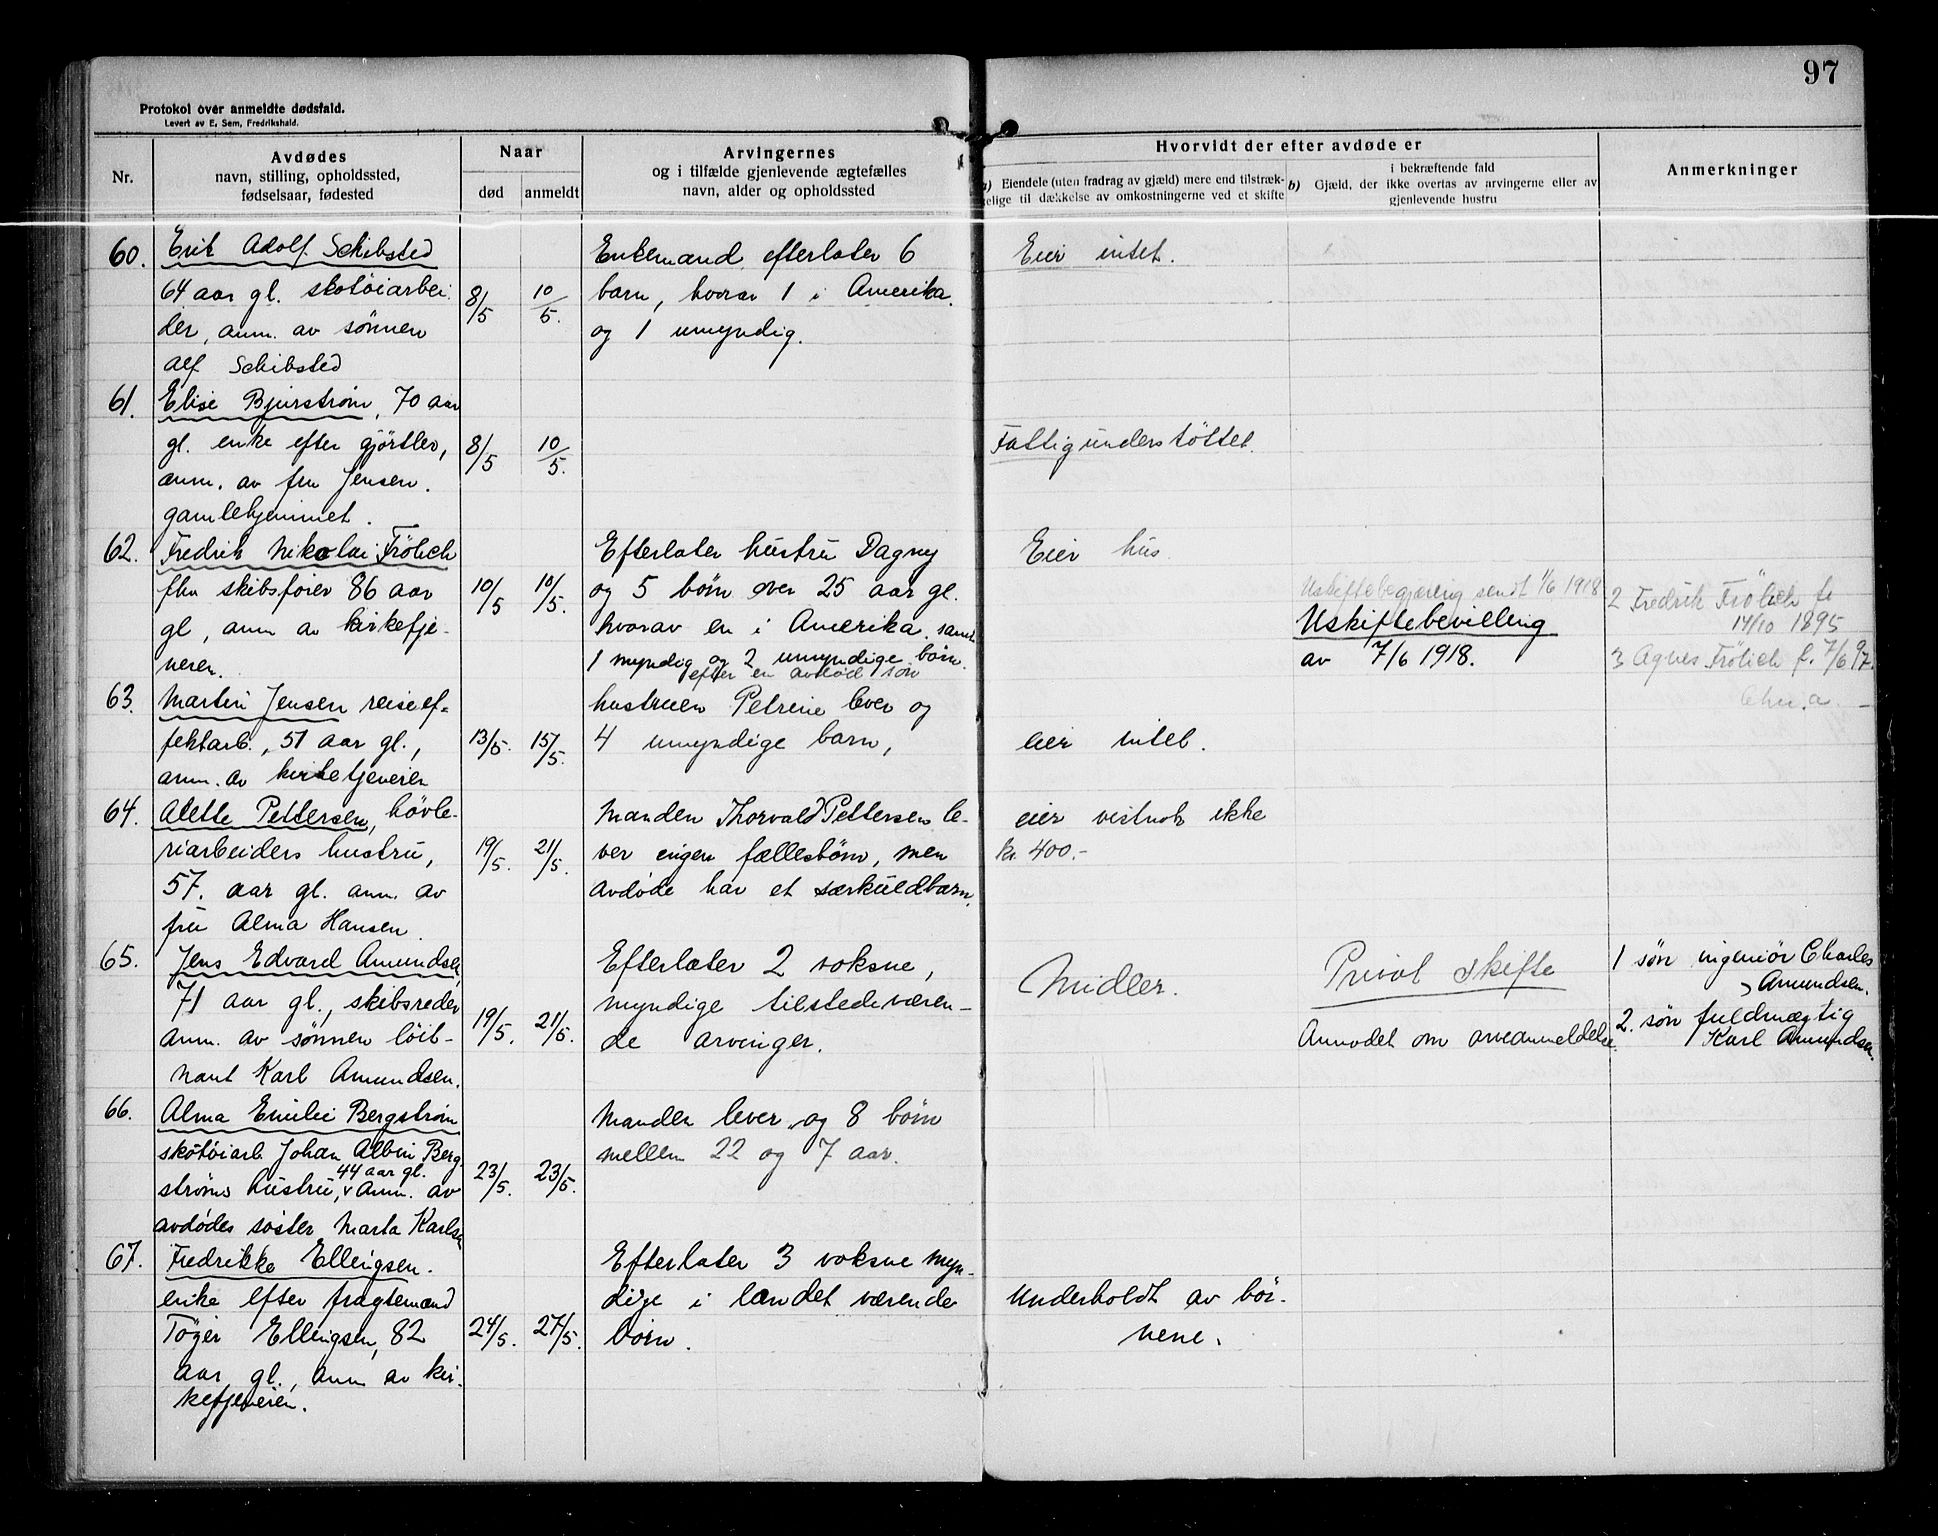 97
Protokol over anmeldte dødsfald.
Levert av E. Sem, Fredrikshald.
Nr.
Avdødes
navn, stilling, opholdssted,
fødselsaar, fødested
Naar
død
anmeldt
Arvingernes
og i tilfælde gjenlevende ægtefælles
navn, alder og opholdssted
Hvorvidt der efter avdøde er
a) Eiendele (uten fradrag av gjæld) mere end tilstræk-
kelige til dækkelse av omkostningerne ved et skifte
i bekræftende fald
b) Gjæld, der ikke overtas av arvingerne eller av
gjenlevende hustru
Anmerkninger
60.
Erik Adolf Schibsted
64 aar gl. skotøiarbei-
der, anm. av sønnen
Alf Schibsted
8/5
10/5.
Enkemand, efterlater 6
barn, hvorav 1 i Amerika.
og 1 umyndig.
Eier intet.
61.
Elise Bjurstrøm, 70 aar
gl. enke efter gjørtler,
anm. av fru Jensen.
gamlehjemmet.
8/5
10/5.
Fattigunderstøttet.
62.
Fredrik Nikolai Frölich
fhv skibsfører 86 aar
gl, anm av kirketje-
neren.
10/5
10/5.
Efterlater hustru Dagny
og 5 børn over 25 aar gl.
hvorav en i Amerika. samt
1 myndig og 2 umyndige børn.
efter en avdød søn
Eier hus.
Uskiftebegjæring sendt 1/6 1918
Uskiftebevilling
av 7/6 1918.
2 Fredrik Frölich f.
14/10 1895
3 Agnes Frölich f. 7/6 97.
Chr.a.
63.
Martin Jensen reiseef-
fektarb., 51 aar gl.,
anm. av kirketjeneren
13/5.
15/5.
hustruen Petrine lever og
4 umyndige barn,
eier intet.
64.
Alette Pettersen, høvle-
riarbeiders hustru,
57. aar gl. anm. av
fru Alma Hansen.
19/5.
21/5.
Manden Thorvald Pettersen le-
ver ingen fællesbørn, men
avdøde har et særkuldbarn.
eier vistnok ikke
kr. 400.-
65.
Jens Edvard Amundsen,
71 aar gl., skibsreder
anm. av sønnen löit-
nant Karl Amundsen.
19/5.
21/5.
Efterlater 2 voksne,
myndige tilstedeværen-
de arvinger.
Midler.
Privat skifte
Anmodet om arveanmeldelse.
1 søn ingeniør Charles
Amundsen.
2. søn fuldmægtig
Karl Amundsen.
66.
Alma Emilie Bergstrøm
skotøiarb. Johan Albin Berg-
44 aar gl.
strøms hustru, anm. av
avdødes søster Marta Karlsen
23/5.
23/5.
Manden lever og 8 børn
mellem 22 og 7 aar.
67.
Fredrikke Ellingsen.
enke efter fragtemand
Töger Ellingsen, 82
aar gl., anm av kir-
ketjeneren.
24/5.
27/5.
Efterlater 3 voksne myn-
dige i landet værende
børn.
Underholdt av bör-
nene.